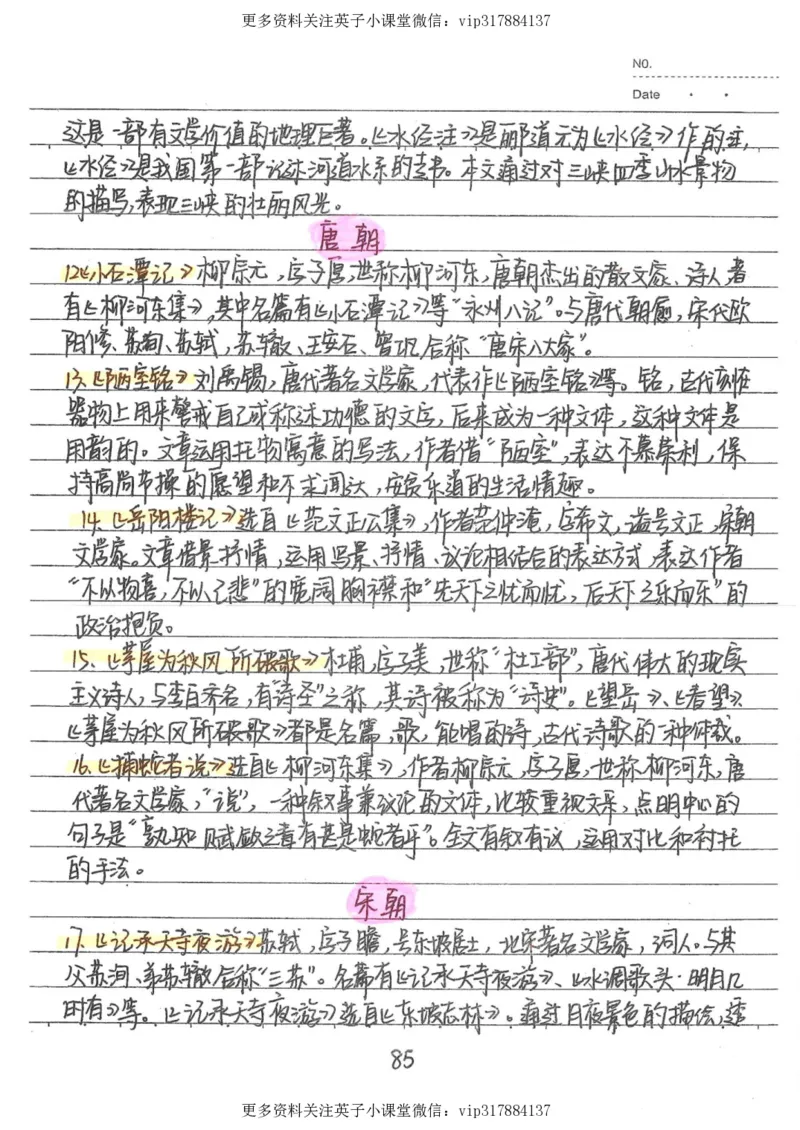 更多资料关注英子小课堂微信：vip317884137
NO.
Date
这是一部有文学价值的地理巨著。《水经注》是郦道元为《水经》作的注，
《水经》是我国第一部记述河道水系的专书。本文通过对三峡四季山水景物
的描写，表现三峡的壮丽风光。
唐朝
12《小石潭记》柳宗元，字子厚，世称柳河东，唐朝杰出的散文家、诗人，著
有《柳河东集》，其中名篇有《小石潭记》等“永州八记”。与唐代韩愈，宋代欧
阳修、苏洵、苏轼，苏辙、王安石、曾巩合称“唐宋八大家”。
13、《陋室铭》刘禹锡，唐代著名文学家，代表作《陋室铭》等。铭，古代刻在
器物上用来警戒自己或称述功德的文字，后来成为一种文体，这种文体是
用韵的。文章运用托物寓意的写法，作者借“陋室”，表达不慕荣利，保
持高尚节操的愿望和不求闻达，安贫乐道的生活情趣。
14、《岳阳楼记》选自《范文正公集》，作者范仲淹，字希文，谥号文正，宋朝
文学家。文章借景抒情，运用写景、抒情、议论相结合的表达方式，表达作者
“不以物喜，不以己悲”的宽阔胸襟和“先天下之忧而忧，后天下之乐而乐”的
政治抱负。
15、《茅屋为秋风所破歌》杜甫，字子美，世称“杜工部”，唐代伟大的现实
主义诗人，与李白齐名，有“诗圣”之称，其诗被称为“诗史”。《望岳》、《春望》、
《茅屋为秋风所破歌》都是名篇，歌，能唱的诗，古代诗歌的一种体裁。
16、《捕蛇者说》选自《柳河东集》，作者柳宗元，字子厚，世称柳河东，唐
代著名文学家，“说”，一种叙事兼议论的文体，比较重视文采，点明中心的
句子是“孰知赋敛之毒有甚是蛇者乎”。全文有叙有议，运用对比和衬托
的手法。
宋朝
17、《记承天寺夜游》苏轼，字子瞻，号东坡居士，北宋著名文学家，词人。与其
父苏洵、弟苏辙合称“三苏”。名篇有《记承天寺夜游》、《水调歌头·明月几
时有》等。《记承天寺夜游》选自《东坡志林》。通过月夜景色的描绘，透
85
更多资料关注英子小课堂微信：vip317884137